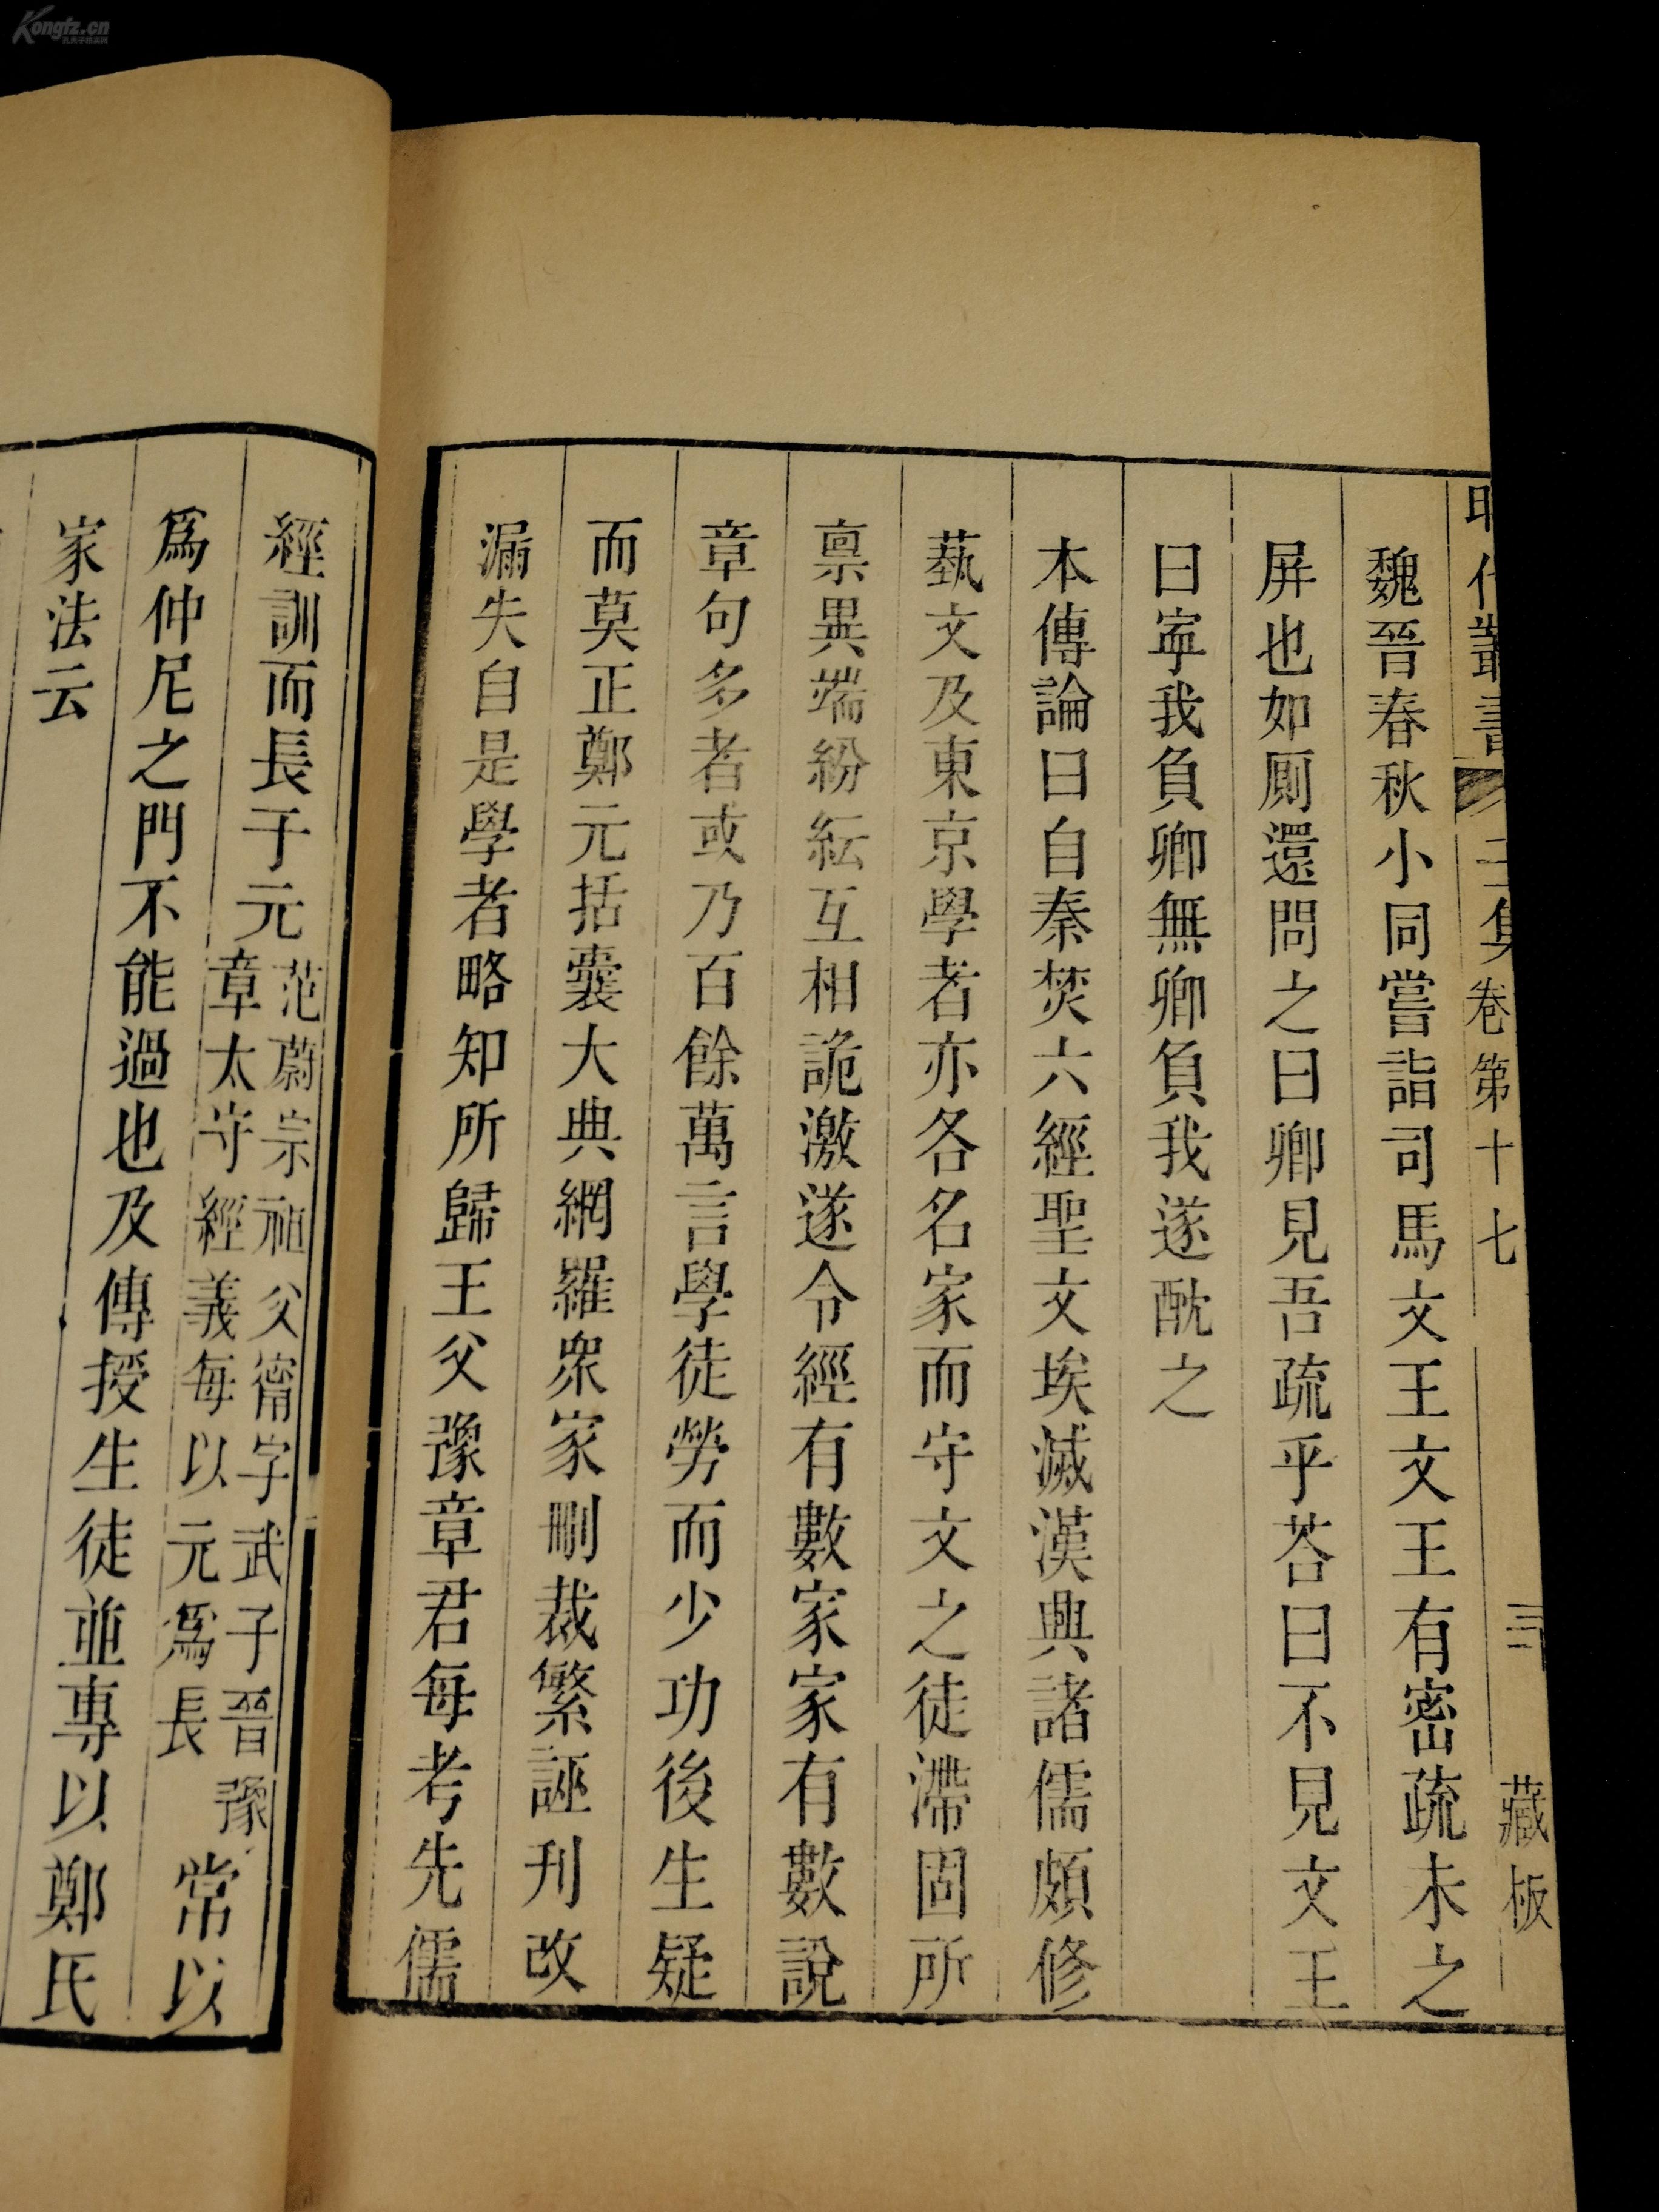 Kongfz.cn
昭代叢書
卷第十七
藏板
魏晉春秋小同嘗詣司馬文王文王有密疏未之
屏也如厠還問之曰卿見吾疏乎荅曰不見文王
曰寧我負卿無卿負我遂酖之
本傳論曰自秦焚六經聖文埃滅漢興諸儒頗修
藝文及東京學者亦各名家而守文之徒滯固所
禀異端紛紜互相詭激遂令經有數家家有數說
章句多者或乃百餘萬言學徒勞而少功後生疑
而莫正鄭元括囊大典網羅衆家刪裁繁誣刊改
漏失自是學者略知所歸王父豫章君每考先儒
經訓而長于元范蔚宗祖父甯字武子晉豫章太守經義每以元爲長常以
爲仲尼之門不能過也及傳授生徒並專以鄭氏
家法云